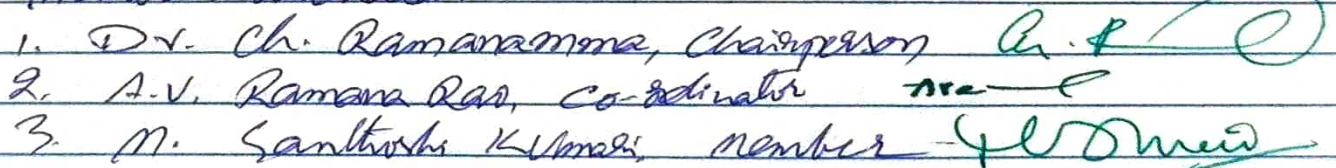 1. Dr. Ch. Ramanamma, Chairperson Ch. R
2. A.V. Ramana Rao, Co-ordinator
3. M. Santhoshi Kumari, member